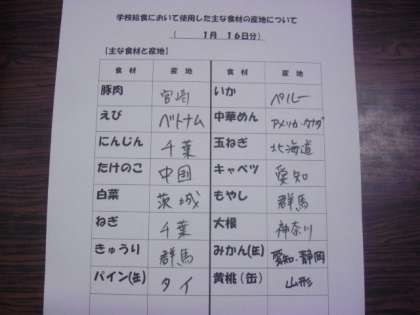 学校給食において使用した主な食材の産地について
(　1月　16日分)
[主な食材と産地]
食材　産地　食材　産地
豚肉　宮崎　いか　ペルー
えび　ベトナム　中華めん　アメリカ・カナダ
にんじん　千葉　玉ねぎ　北海道
たけのこ　中国　キャベツ　愛知
白菜　茨城　もやし　群馬
ねぎ　千葉　大根　神奈川
きゅうり　群馬　みかん(缶)　愛知・静岡
パイン(缶)　タイ　黄桃(缶)　山形